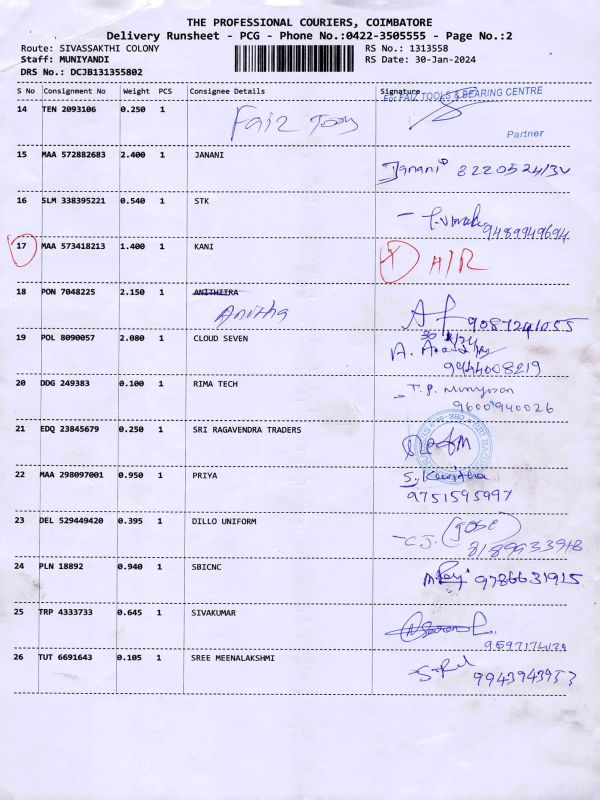 THE PROFESSIONAL COURIERS, COIMBATORE
Delivery Runsheet - PCG - Phone No.:0422-3505555 - Page No.:2
Route: SIVASSAKTHI COLONY RS No.: 1313558
Staff: MUNIYANDI RS Date: 30-Jan-2024
DRS No.: DCJB131355802
S No Consignment No Weight PCS Consignee Details Signature
For FAIZ TOOLS & BEARING CENTRE
14 TEN 2093106 0.250 1 Faiz Tools
Partner
15 MAA 572882683 2.400 1 JANANI
Janani
16 SLM 338395221 0.540 1 STK
9489949694
17 MAA 573418213 1.400 1 KANI
A/R
18 PON 7048225 2.150 1 ANITHITRA
Anitha
9087291055
19 POL 8090057 2.080 1 CLOUD SEVEN
9944008219
20 DDG 249383 0.100 1 RIMA TECH
9600940026
21 EDQ 23845679 0.250 1 SRI RAGAVENDRA TRADERS
22 MAA 298097001 0.950 1 PRIYA
S. Kavitha
9751595997
23 DEL 529449420 0.395 1 DILLO UNIFORM
C.J. JOSE
8189933918
24 PLN 18892 0.940 1 SBICNC
9786631915
25 TRP 4333733 0.645 1 SIVAKUMAR
26 TUT 6691643 0.105 1 SREE MEENALAKSHMI
9943943953